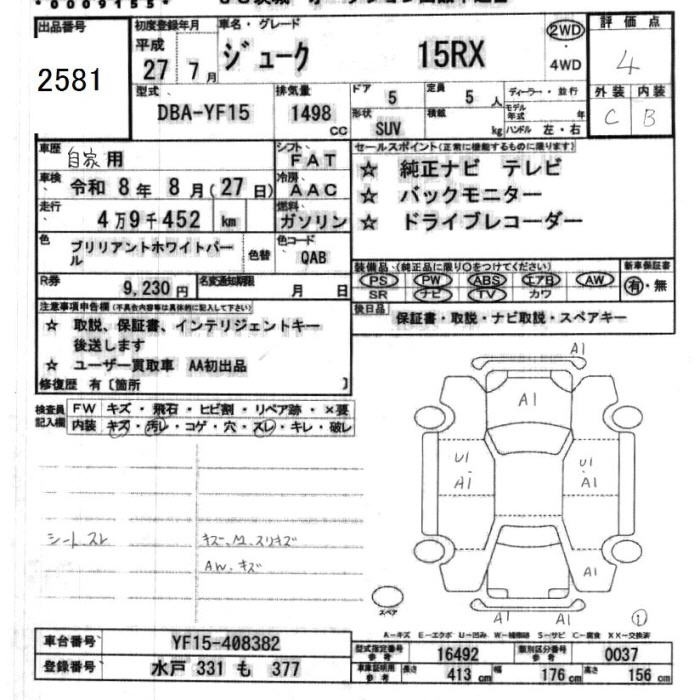 *0009155*
出品番号
2581
初度登録年月
平成
27年7月
車名・グレード
ジューク 15RX
2WD
・
4WD
評価点
4
外装 内装
C B
型式
DBA-YF15
排気量
1498 cc
ドア
5
定員
5 人
形状
SUV
積載
kg
ディーラー・並行
モデル年式 年
ハンドル 左・右
車歴
自家用
シフト
FAT
車検
令和 8年 8月(27日)
冷房
AAC
走行
4万9千452 km
燃料
ガソリン
色
ブリリアントホワイトパール
色替
色コード
QAB
R券
9,230円
名変通知期限
月 日
セールスポイント(正常に機能するものに限ります)
☆ 純正ナビ テレビ
☆ バックモニター
☆ ドライブレコーダー
装備品(純正品に限り○をつけてください)
PS PW ABS エアB AW
SR ナビ TV カワ
新車保証書
有・無
後日品
保証書・取説・ナビ取説・スペアキー
注意事項申告欄(不具合内容等は具体的に記入して下さい)
☆ 取説、保証書、インテリジェントキー
後送します
☆ ユーザー買取車 AA初出品
修復歴 有〔箇所 〕
検査員
記入欄
FW キズ・飛石・ヒビ割・リペア跡・×要
内装 キズ・汚レ・コゲ・穴・スレ・キレ・破レ
シートスレ
キズ、M、スリキズ
AW、キズ
A1
A1
U1
・
A1
U1
・
A1
A1
A1 A1
スペア
①
A−キズ E−エクボ U−凹み W−補修跡 S−サビ C−腐食 XX−交換済
車台番号
YF15-408382
登録番号
水戸 331 も 377
型式指定番号
参考
16492
類別区分番号
参考
0037
車庫証明用
参考
長さ
413 cm
幅
176 cm
高さ
156 cm